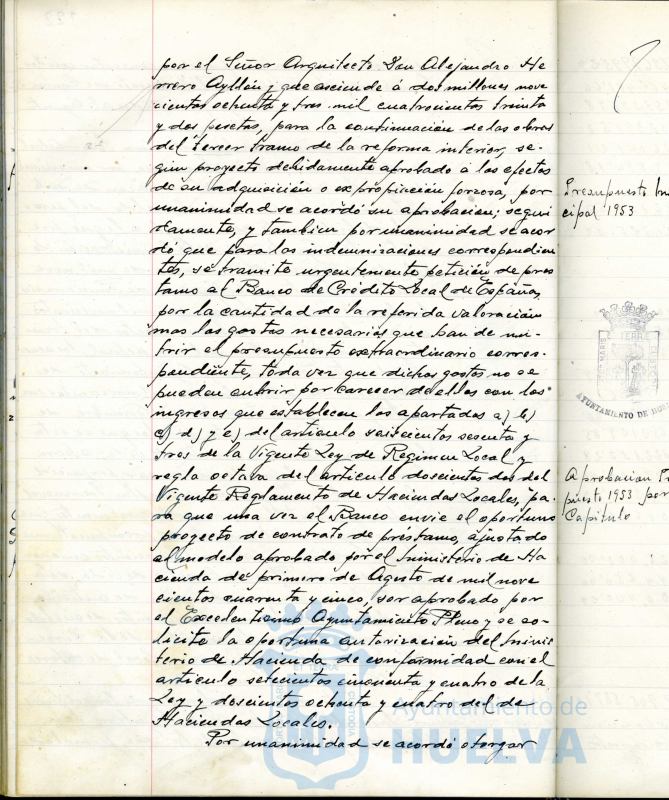 por el Señor Arquitecto Don Alejandro He
rrero Ayllón y que asciende á dos millones nove
cientos ochenta y tres mil cuatrocientos treinta
y dos pesetas, para la continuación de las obras
del tercer tramo de la reforma interior, se-
gún proyecto debidamente aprobado a los efectos
de su adquisición o expropiación forzosa, por
unanimidad se acordó su aprobación; segui
damente, y tambien por unanimidad se acor
dó que para las indemnizaciones correspondien
tes, se tramite urgentemente petición de pres
tamo al Banco de Crédito Local de España,
por la cantidad de la referida valoración
mas los gastos necesarios que han de nu-
trir el presupuesto extraordinario corres-
pondiente, toda vez que dichos gastos no se
pueden cubrir por carecer de ellos con los
ingresos que establecen los apartados a) b)
c) d) y e) del articulo seiscientos sesenta y
tres de la Vigente Ley de Regimen Local y
regla octava del articulo doscientos dos del
Vigente Reglamento de Haciendas Locales, pa-
ra que una vez el Banco envie el oportuno
proyecto de contrato de prestamo, ajustado
al modelo aprobado por el Ministerio de Ha
cienda de primero de Agosto de mil nove
cientos cuarenta y cinco, ser aprobado por
el Excelentisimo Ayuntamiento Pleno y se so-
licite la oportuna autorización del Minis
terio de Hacienda de conformidad con el
articulo setecientos cincuenta y cuatro de la
Ley y doscientos ochenta y cuatro del de
Haciendas Locales.
Por unanimidad se acordó otorgar
Presupuesto
cipal 1953
AYUNTAMIENTO DE
Aprobacion
puesto 1953 por
Capitulo
Ayuntamiento de
HUELVA